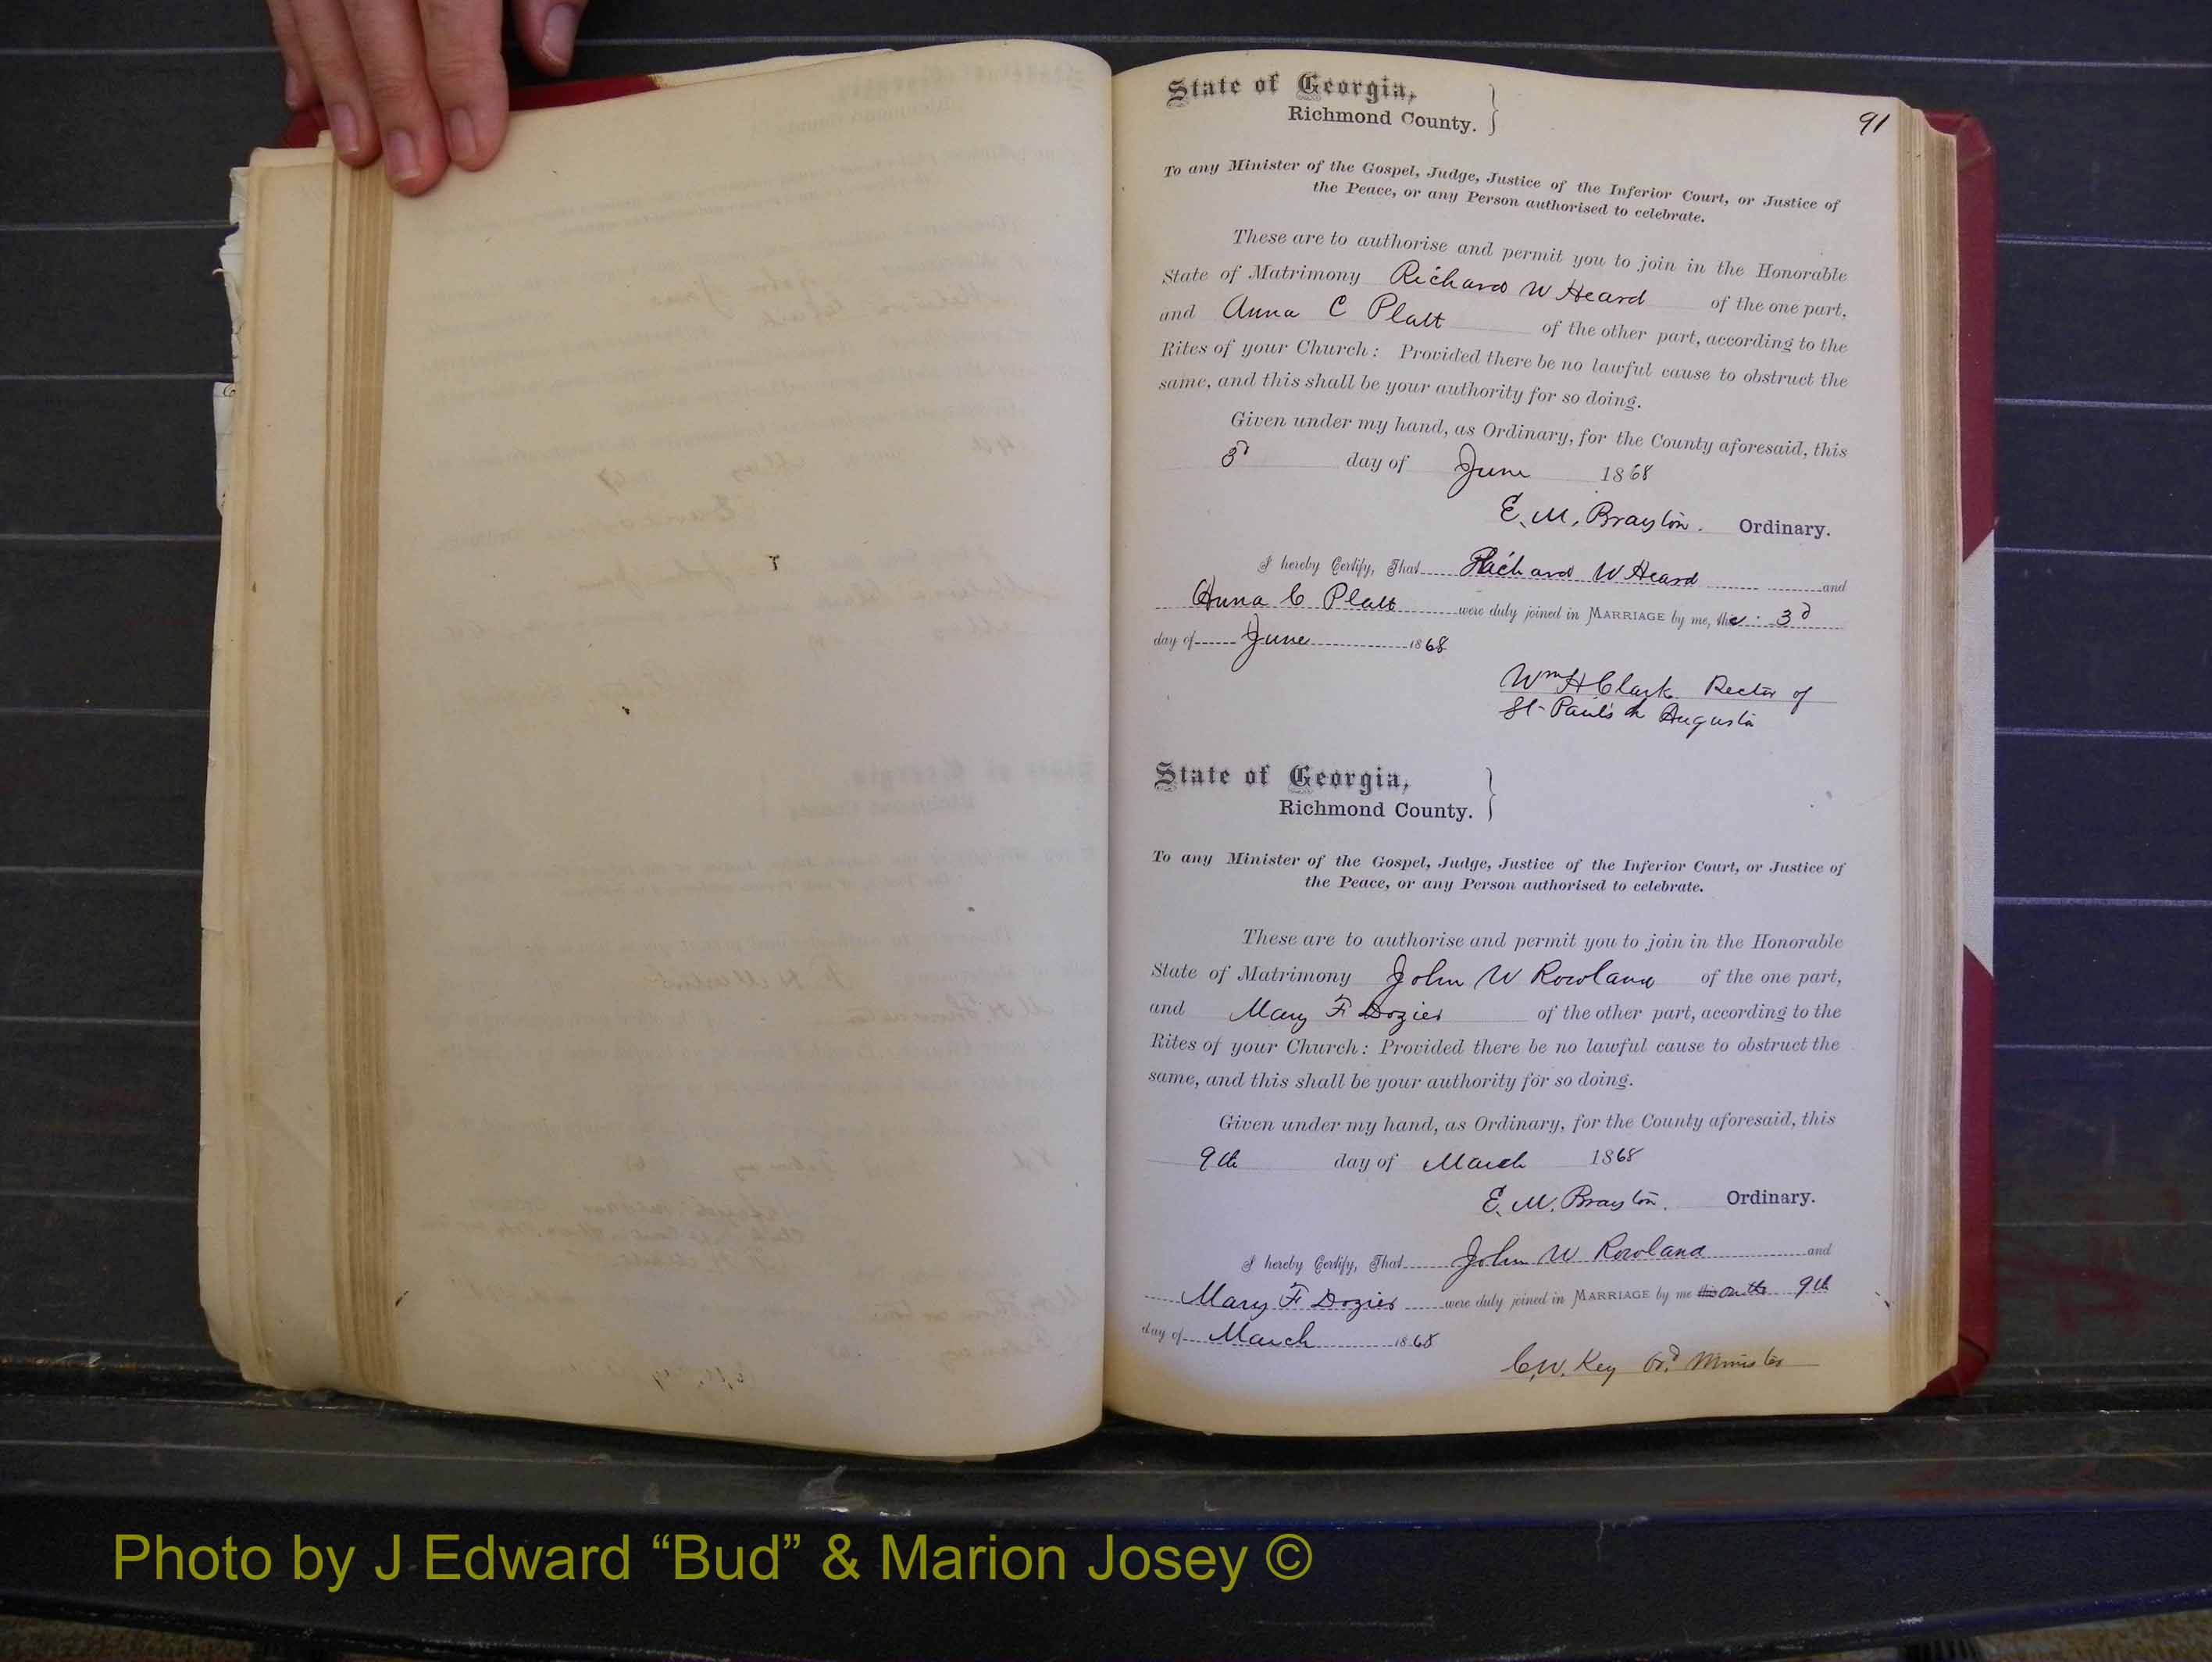 91
State of Georgia,
Richmond County.
To any Minister of the Gospel, Judge, Justice of the Inferior Court, or Justice of
the Peace, or any Person authorised to celebrate.
These are to authorise and permit you to join in the Honorable
State of Matrimony Richard W Heard of the one part,
and Anna C Platt of the other part, according to the
Rites of your Church: Provided there be no lawful cause to obstruct the
same, and this shall be your authority for so doing.
Given under my hand, as Ordinary, for the County aforesaid, this
3d day of June 1868
E. M. Brayton. Ordinary.
I hereby Certify, That Richard W Heard and
Anna C Platt were duly joined in MARRIAGE by me, the 3d
day of June 1868
Wm H Clark Rector of
St Paul's Augusta
State of Georgia,
Richmond County.
To any Minister of the Gospel, Judge, Justice of the Inferior Court, or Justice of
the Peace, or any Person authorised to celebrate.
These are to authorise and permit you to join in the Honorable
State of Matrimony John W Rowland of the one part,
and Mary F Dozier of the other part, according to the
Rites of your Church: Provided there be no lawful cause to obstruct the
same, and this shall be your authority for so doing.
Given under my hand, as Ordinary, for the County aforesaid, this
9th day of March 1868
E. M. Brayton. Ordinary.
I hereby Certify, That John W Rowland and
Mary F Dozier were duly joined in MARRIAGE by me this on the 9th
day of March 1868
C. W. Key Ord Minister
Photo by J Edward “Bud” & Marion Josey ©